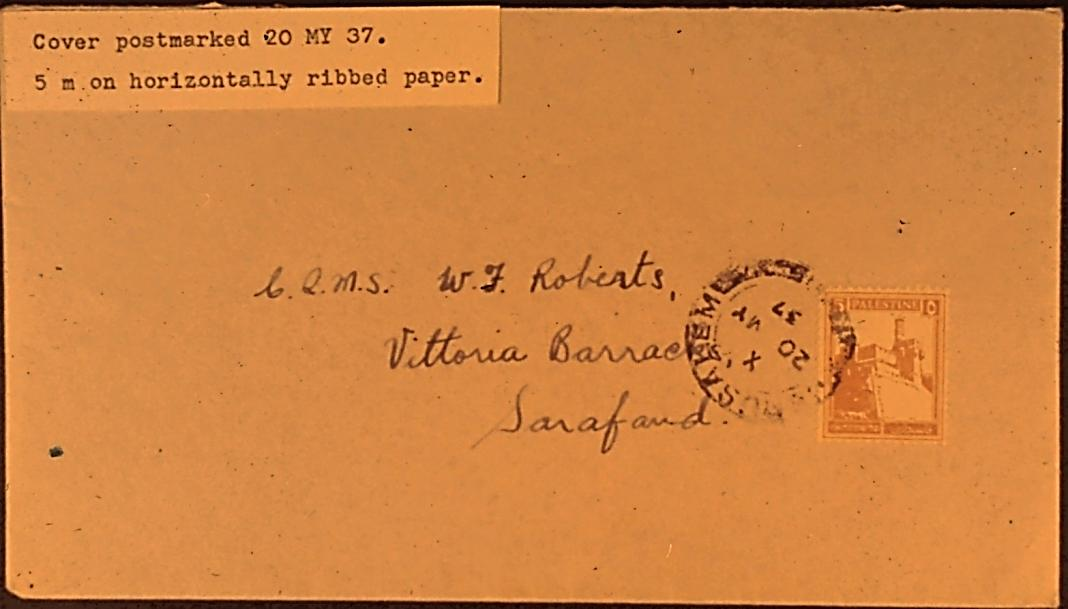 Cover postmarked 20 MY 37.
5 m on horizontally ribbed paper.
C.Q.M.S. W.F. Roberts,
Vittoria Barracks,
Sarafand.
JERUSALEM
X
20 MY
37
5 PALESTINE ٥